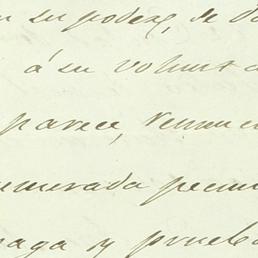 n su poder, de
á su volunt
parece, renun
numerada pecun
paga y prueba